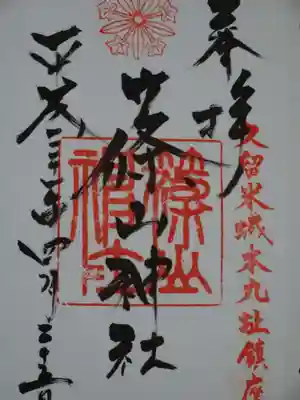 奉拝
久留米城本丸址鎮座
篠山神社
篠山神社
平成二十三年四月二十五日